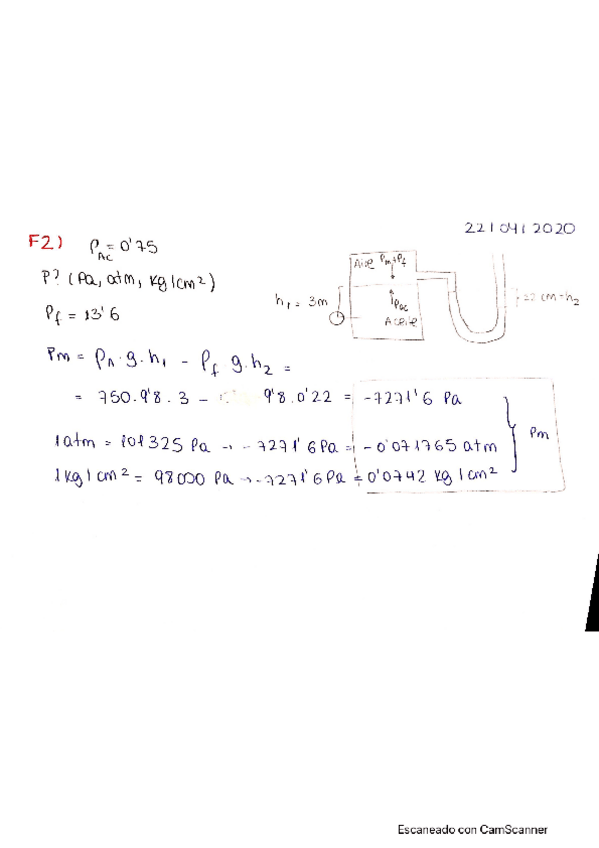 22/04/2020
F2) ρAc = 0'75
P? (Pa, atm, kg/cm²)
ρf = 13'6
Aire Pm+Pf
h₁ = 3m
PAc
Aceite
22 cm = h₂
Pm = ρA · g · h₁ - ρf g · h₂ =
= 750 · 9'8 · 3 - 9'8 · 0'22 = -7271'6 Pa
1 atm = 101325 Pa → -7271'6 Pa = -0'071765 atm
Pm
1 kg/cm² = 98000 Pa → -7271'6 Pa = 0'0742 kg/cm²
Escaneado con CamScanner